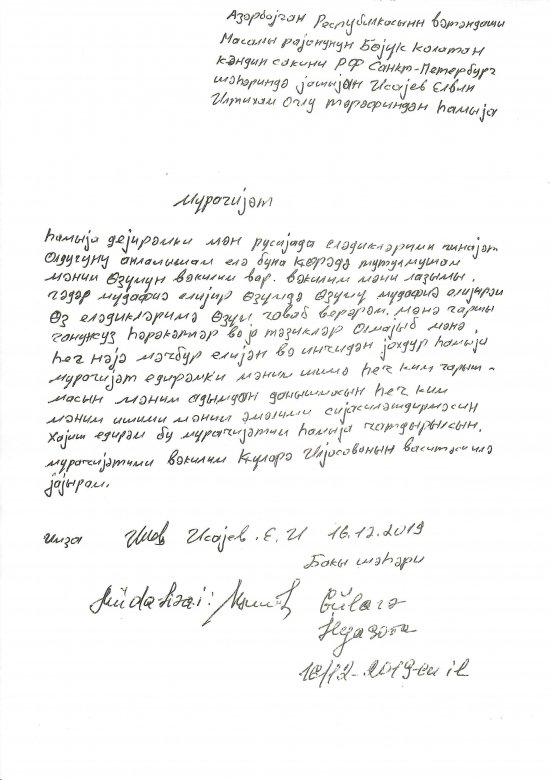 Азәрбојҹан Республикасынын вәтәндашы
Масалы рајонунун Бөјүк Колатан
кәндин сакини РФ Санкт-Петербург
шәһәриндә јашијан Исајев Елвин
Илтихам Оғлу тәрәфиндән һамыја
Мурачијәт
һамыја дејирәмки мән русијада еләдикләрими ҹинајәт
олдуғуну анламышам елә буна көрәдә тутулмушам
мәним өзүмүн вәкилим вар. вәкилим мәни лазымы
гәдәр мудафиә елијир өзүмдә өзүмү мудафиә елијирәм
өз еләдикләримә өзүм ҹаваб верәрәм. мәнә гаршы
ганунсуз һәрәкәтләр вә ја тәзикләр олмајыб мәнә
һеч нәјә мәҹбур елијән вә инҹидән јохдур һамыја
мурачијәт едирәмки мәним ишимә һеч ким гарыш-
масын мәним адымдан данышмасын һеч ким
мәним ишими мәним әмәлими сијасиләшдирмәсин
Хаһиш едирәм бу мурачијәтими һамыја чатдырысын.
мурачијәтими вәкилим Күларә Илјасованын васитәсилә
јајырам.
имза Исајев. Е. И 16.12.2019
Бакы шәһәри
Müdafiəçi:
16/12-2019-cu il